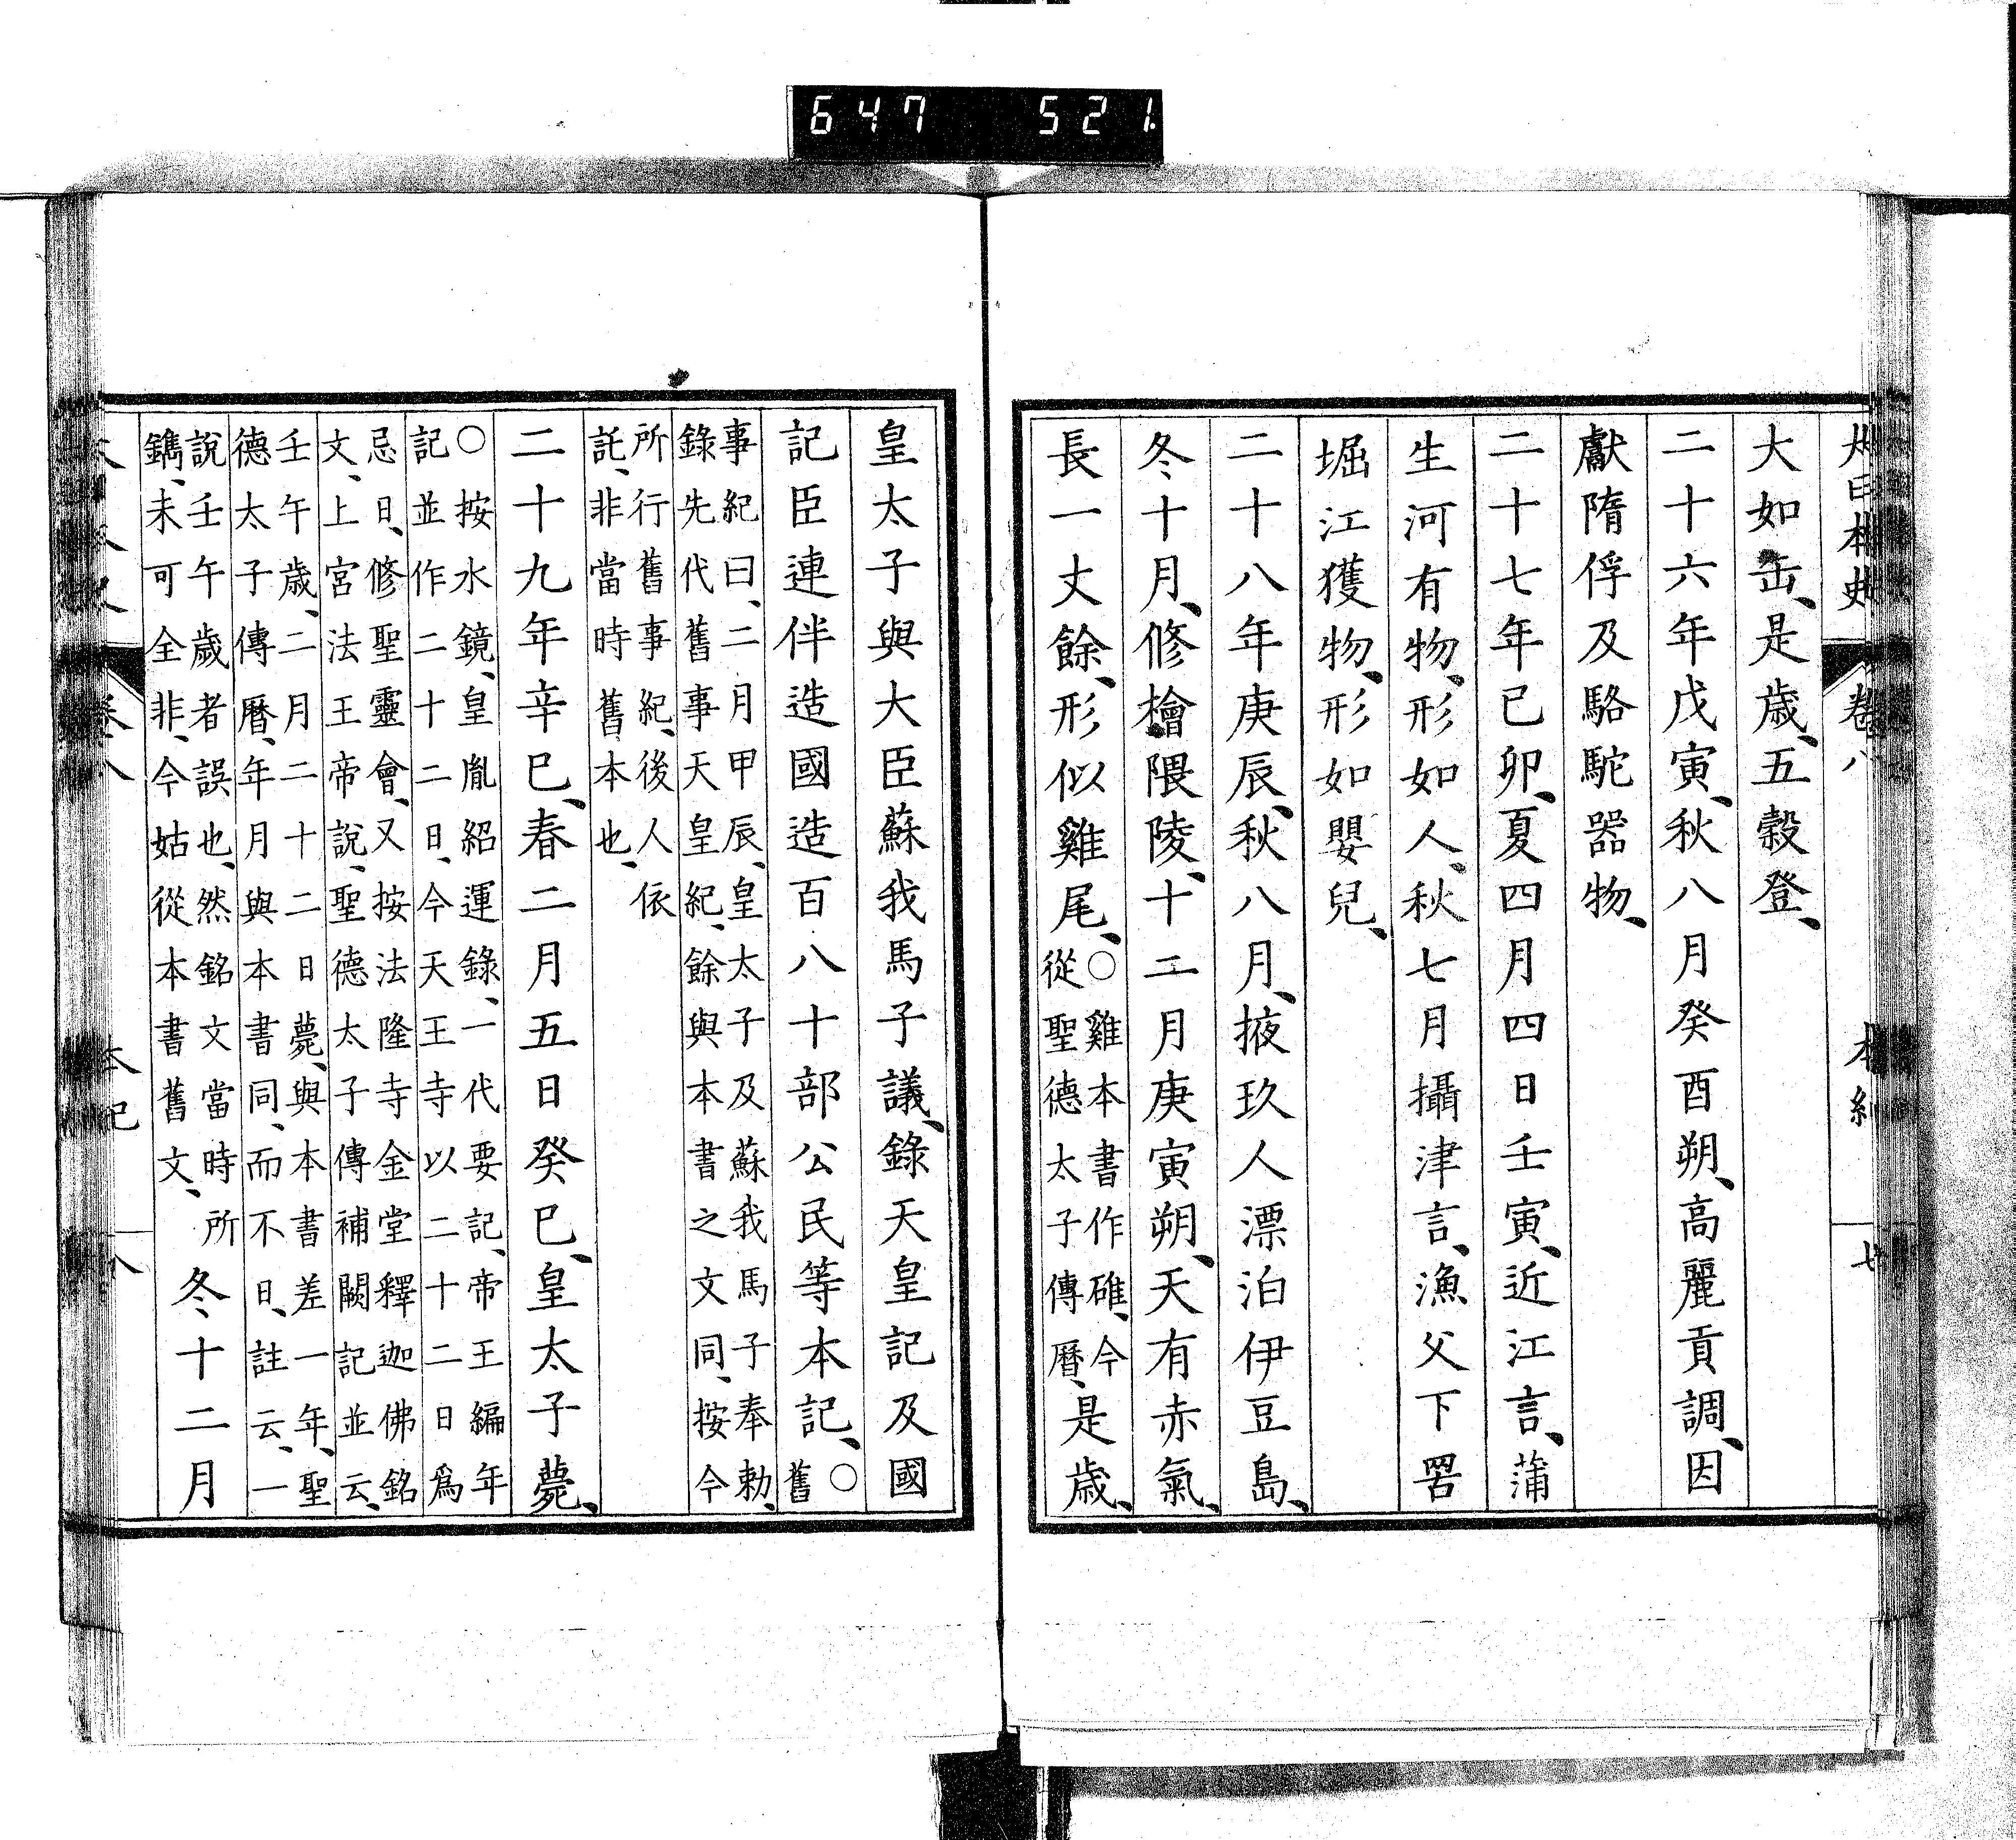 647 521.
大如缶、是歲、五穀登、
二十六年戊寅、秋八月癸酉朔、高麗貢調、因
獻隋俘及駱駝器物、
二十七年己卯、夏四月四日壬寅、近江言、蒲
生河有物、形如人、秋七月攝津言、漁父下罟
堀江獲物、形如嬰兒、
二十八年庚辰、秋八月、掖玖人漂泊伊豆島、
冬十月、修檜隈陵、十二月庚寅朔、天有赤氣、
長一丈餘、形似雞尾、○雞本書作碓、今從聖德太子傳曆、是歲、
皇太子與大臣蘇我馬子議、錄天皇記及國
記臣連伴造國造百八十部公民等本記、○舊
事紀曰、二月甲辰、皇太子及蘇我馬子奉勅、
錄先代舊事天皇紀、餘與本書之文同、按今
所行舊事紀、後人依
託、非當時舊本也、
二十九年辛巳、春二月五日癸巳、皇太子薨、
○按水鏡、皇胤紹運錄、一代要記、帝王編年
記並作二十二日、今天王寺以二十二日爲
忌日、修聖靈會、又按法隆寺金堂釋迦佛銘
文、上宮法王帝說、聖德太子傳補闕記並云、
壬午歲、二月二十二日薨、與本書差一年、聖
德太子傳曆、年月與本書同、而不日、註云、一
說壬午歲者誤也、然銘文當時所
鐫、未可全非、今姑從本書舊文、冬十二月
卷八
本紀
八